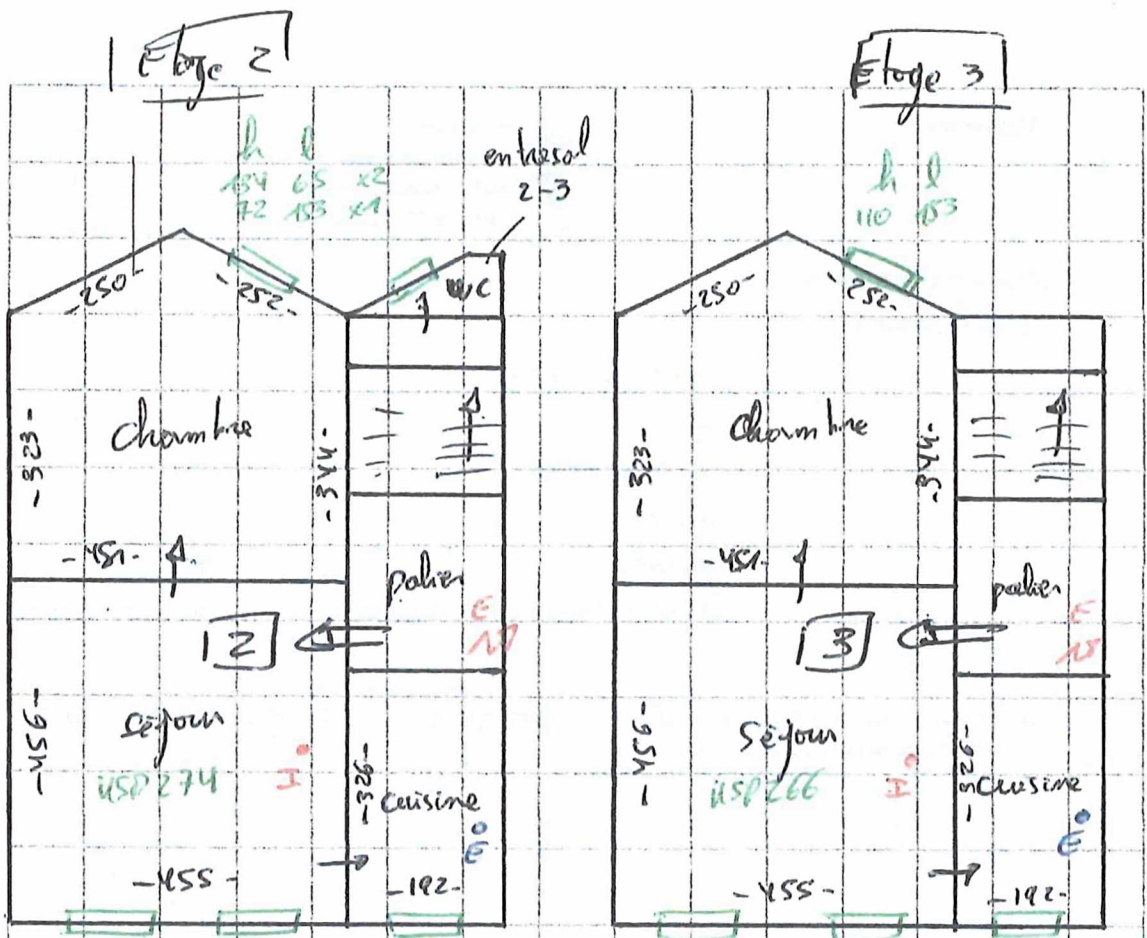 Etage 2
h l
154 65 x2
72 153 x1
entresol
2-3
-250-
-252-
WC
-323-
Chambre
-344-
-451-
palier
E
2
-456-
séjour
HSP 274
H
-326-
cuisine
E
-455-
-192-
Etage 3
h l
110 153
-250-
-252-
-323-
Chambre
-344-
-451-
palier
E
3
-456-
Séjour
HSP 266
H
-326-
cuisine
E
-455-
-192-